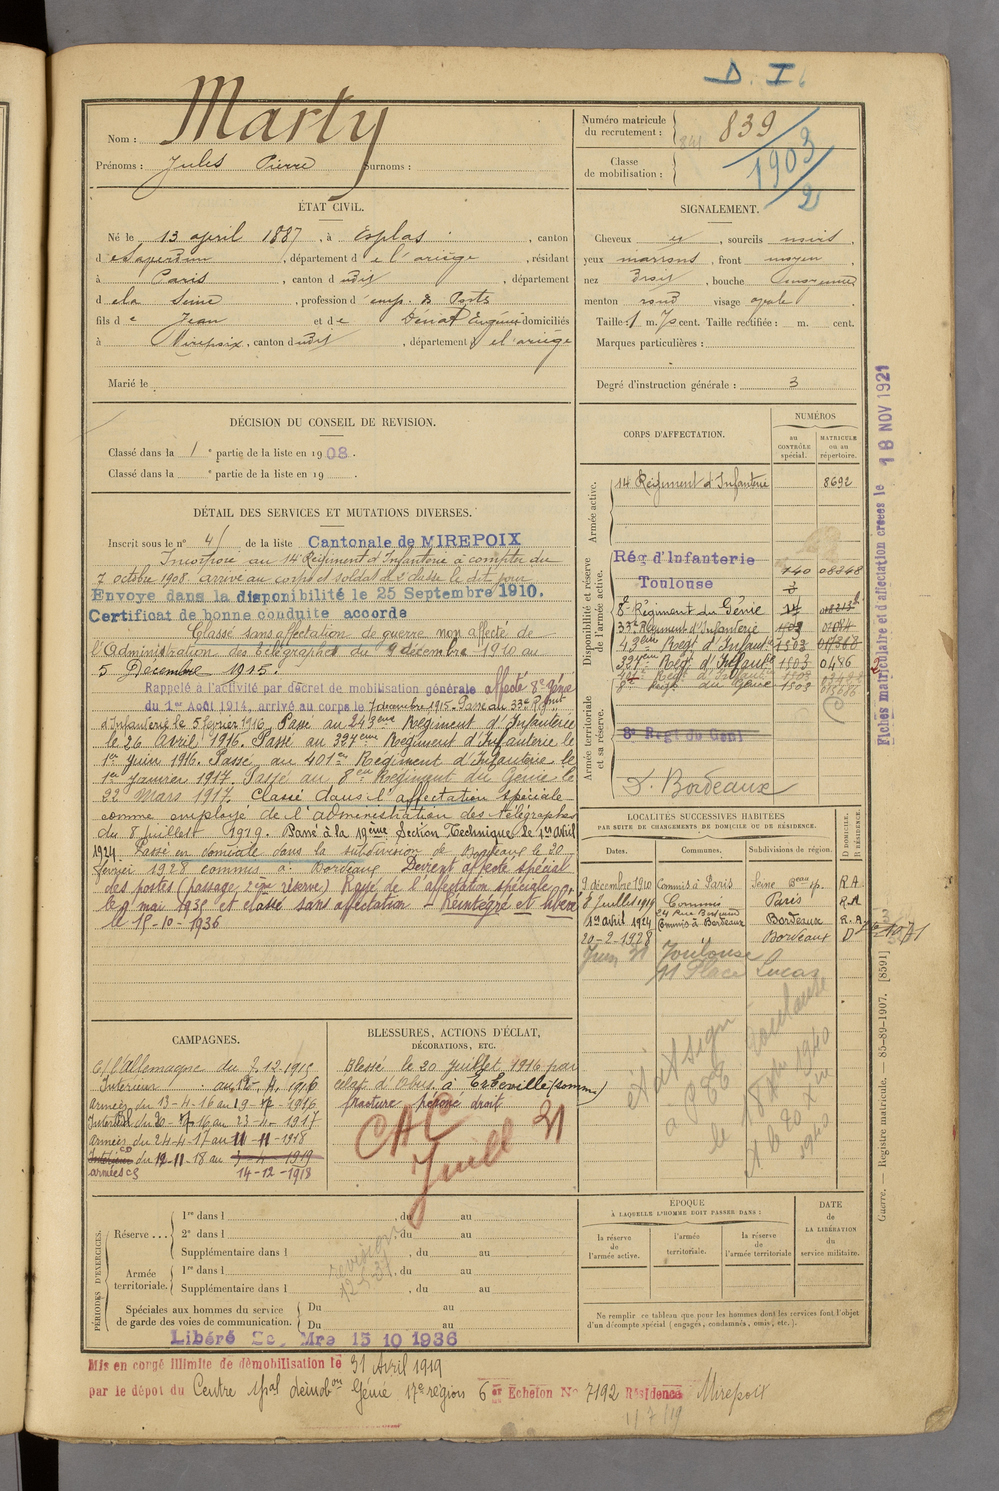 D. I.
Nom : Marty
Prénoms : Jules Pierre Surnoms :
Numéro matricule du recrutement : 839
Classe de mobilisation : 1903/2
ÉTAT CIVIL.
Né le 13 april 1887, à Esplas, canton
d e Saverdun, département d e l'ariège, résidant
à Paris, canton d udit, département
d e la Seine, profession d'emp. des Postes
fils d e Jean et d e Dénat Eugénie domiciliés
à Mirepoix, canton d udit, département d e l'ariège
Marié le
SIGNALEMENT.
Cheveux et, sourcils noirs,
yeux marrons, front moyen,
nez droit, bouche moyenne
menton rond visage ovale
Taille : 1 m. 70 cent. Taille rectifiée : m. cent.
Marques particulières :
Degré d'instruction générale : 3
DÉCISION DU CONSEIL DE REVISION.
Classé dans la 1e partie de la liste en 1908.
Classé dans la e partie de la liste en 19 .
DÉTAIL DES SERVICES ET MUTATIONS DIVERSES.
Inscrit sous le no 4 de la liste Cantonale de MIREPOIX
Incorporé au 14e Régiment d'Infanterie à compter du
7 octobre 1908. arrivé au corps et soldat de 2e classe le dit jour
Envoyé dans la disponibilité le 25 Septembre 1910.
Certificat de bonne conduite accordé
Classé sans affectation de guerre non affecté de
l'Administration des télégraphes du 9 décembre 1910 au
5 Décembre 1915.
Rappelé à l'activité par décret de mobilisation générale affecté 8e Génie
du 1er Août 1914, arrivé au corps le 7 décembre 1915. Passé au 33e Régiment
d'Infanterie le 5 février 1916. Passé au 243ème Régiment d'Infanterie
le 26 Avril 1916. Passé au 327ème Régiment d'Infanterie le
1er Juin 1916. Passé au 401e Régiment d'Infanterie le
1er Janvier 1917. Passé au 8ème Régiment du Génie le
22 Mars 1917. Classé dans l'affectation spéciale
comme employé de l'administration des télégraphes
du 8 juillet 1919. Passé à la 19ème Section Technique, le 1er Avril
1924. Passé en domicile dans la subdivision de Bordeaux le 20
février 1928 commis à Bordeaux Devient affecté spécial
des postes (passage 2ème réserve) Rayé de l'affectation spéciale
le 9 mai 1935 et classé sans affectation - Réintégré et libéré
le 15-10-1936
CORPS D'AFFECTATION.
NUMÉROS
au CONTRÔLE spécial.
MATRICULE ou au répertoire.
Armée active.
14 Régiment d'Infanterie 8692
Disponibilité et réserve de l'armée active.
Rég d'Infanterie Toulouse 740
8e Régiment du Génie
33e Régiment d'Infanterie 1503
43ème Regt d'Infanterie 1503
327e Regt d'Infanterie 1503 0486
8e Regt du Génie 1503
Armée territoriale et sa réserve.
8e Regt du Géni
D. Bordeaux
Fiches matriculaire et d'affectation créées le 18 NOV 1921
LOCALITÉS SUCCESSIVES HABITÉES
PAR SUITE DE CHANGEMENTS DE DOMICILE OU DE RÉSIDENCE.
Dates. Communes. Subdivisions de région. D DOMICILE. R RÉSIDENCE.
9 décembre 1910 Commis à Paris Seine R.A
8 Juillet 1919 Commis Paris R.A
1er avril 1924 Commis à Bordeaux Bordeaux R.A
20-2-1928 " Bordeaux D
Juin 31 Toulouse
11 Place Lucas
CAMPAGNES.
C/ l'Allemagne du 7.12.1915
Intérieur au 12-4-1916
armées du 13-4-16 au 19-7-1916
Intérieur du 20-7-16 au 23-4-1917
armées du 24-4-17 au 11-11-1918
Intérieur du 12-11-18 au 3-4-1919
armées 14-12-1918
BLESSURES, ACTIONS D'ÉCLAT,
DÉCORATIONS, ETC.
Blessé le 20 Juillet 1916 par
éclat d'Obus, à (Somme)
fracture péroné droit
CAC
Juill 31
PÉRIODES D'EXERCICES.
Réserve ... 1re dans l , du au
2e dans l , du au
Supplémentaire dans l , du au
Armée territoriale. 1re dans l , du au
Supplémentaire dans l , du au
Spéciales aux hommes du service de garde des voies de communication. Du au
Du au
ÉPOQUE
À LAQUELLE L'HOMME DOIT PASSER DANS :
la réserve de l'armée active.
l'armée territoriale.
la réserve de l'armée territoriale
DATE de LA LIBÉRATION du service militaire.
Ne remplir ce tableau que pour les hommes dont les services font l'objet
d'un décompte spécial (engagés, condamnés, omis, etc.).
Guerre. — Registre matricule. — 85-89-1907. [8591]
Libéré Mre 15 10 1936
Mis en congé illimité de démobilisation le 31 Avril 1919
par le dépôt du Centre démobon Génie 17e région 6e Echelon No 7192 Résidence Mirepoix
11/7/19